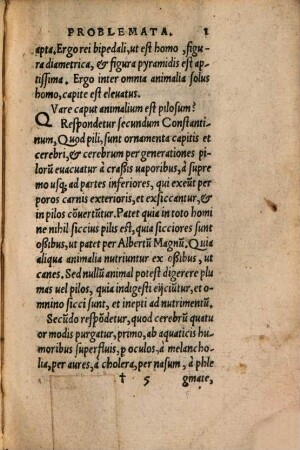 PROBLEMATA. 1
apta, Ergo rei bipedali, ut est homo, figu
ra diametrica, & figura pyramidis est ap
tissima. Ergo inter omnia animalia solus
homo, capite est eleuatus.
QVare caput animalium est pilosum?
Respondetur secundum Constanti
num, Quod pili, sunt ornamenta capitis et
cerebri, & cerebrum per generationes pi
lorũ euacuatur à crassis uaporibus, à su
premo usq; ad partes inferiores, qui exeũt per
poros carnis exterioris, et exsiccantur, &
in pilos cõuertũtur. Patet quia in toto homi
ne nihil siccius pilis est, quia sicciores sunt
oßibus, ut patet per Albertũ Magnũ. Quia
aliqua animalia nutriuntur ex oßibus, ut
canes. Sed nullũ animal potest digerere plu
mas uel pilos, quia indigesti eijciũtur, et o-
mnino sicci sunt, et inepti ad nutrimentũ.
Secũdo respõdetur, quod cerebrũ quatu
or modis purgatur, primo, ab aquaticis hu
moribus superfluis, p oculos, à melancho
lia, per aures, à cholera, per nasum, à phle
† 5 gmate,